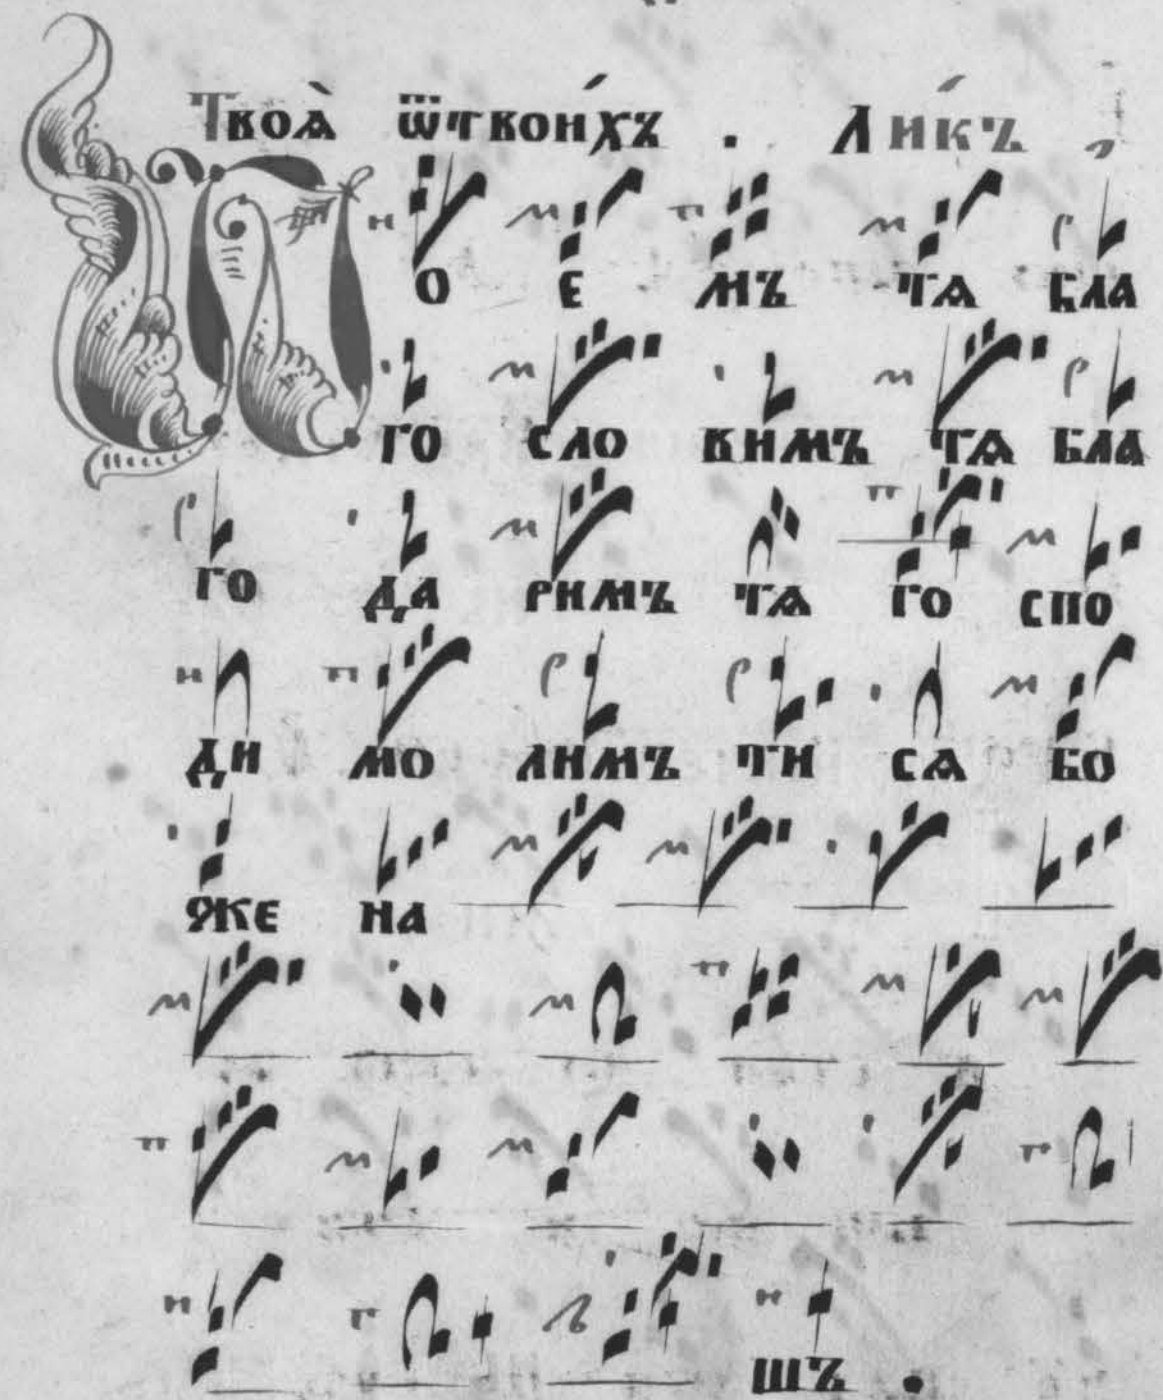 Твоѧ̀ ѿтвои́хъ . Ли́къ ,
П о е мъ тѧ бла
го сло вимъ тѧ бла
го да римъ тѧ го спо
ди мо лимъ ти сѧ бо
же на
шъ .